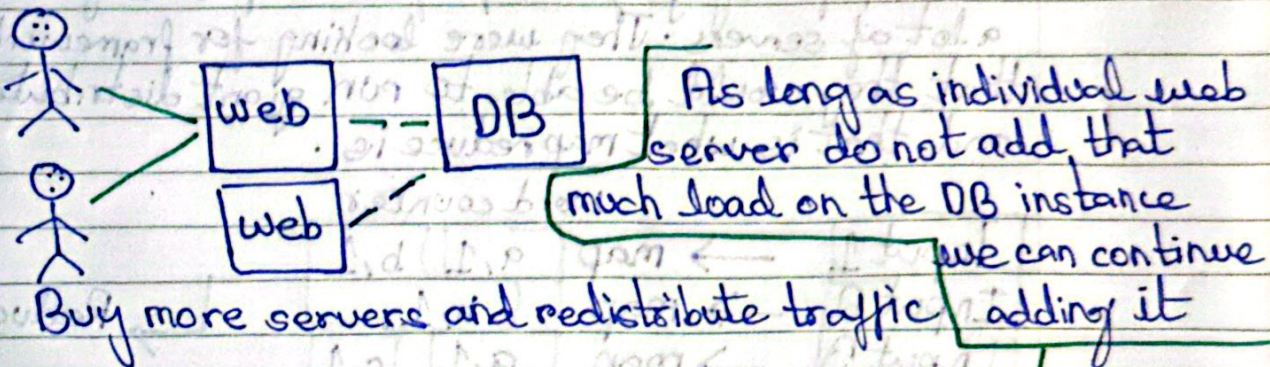 web
DB
web
As long as individual web
server do not add, that
much load on the DB instance
we can continue
adding it
Buy more servers and redistribute traffic